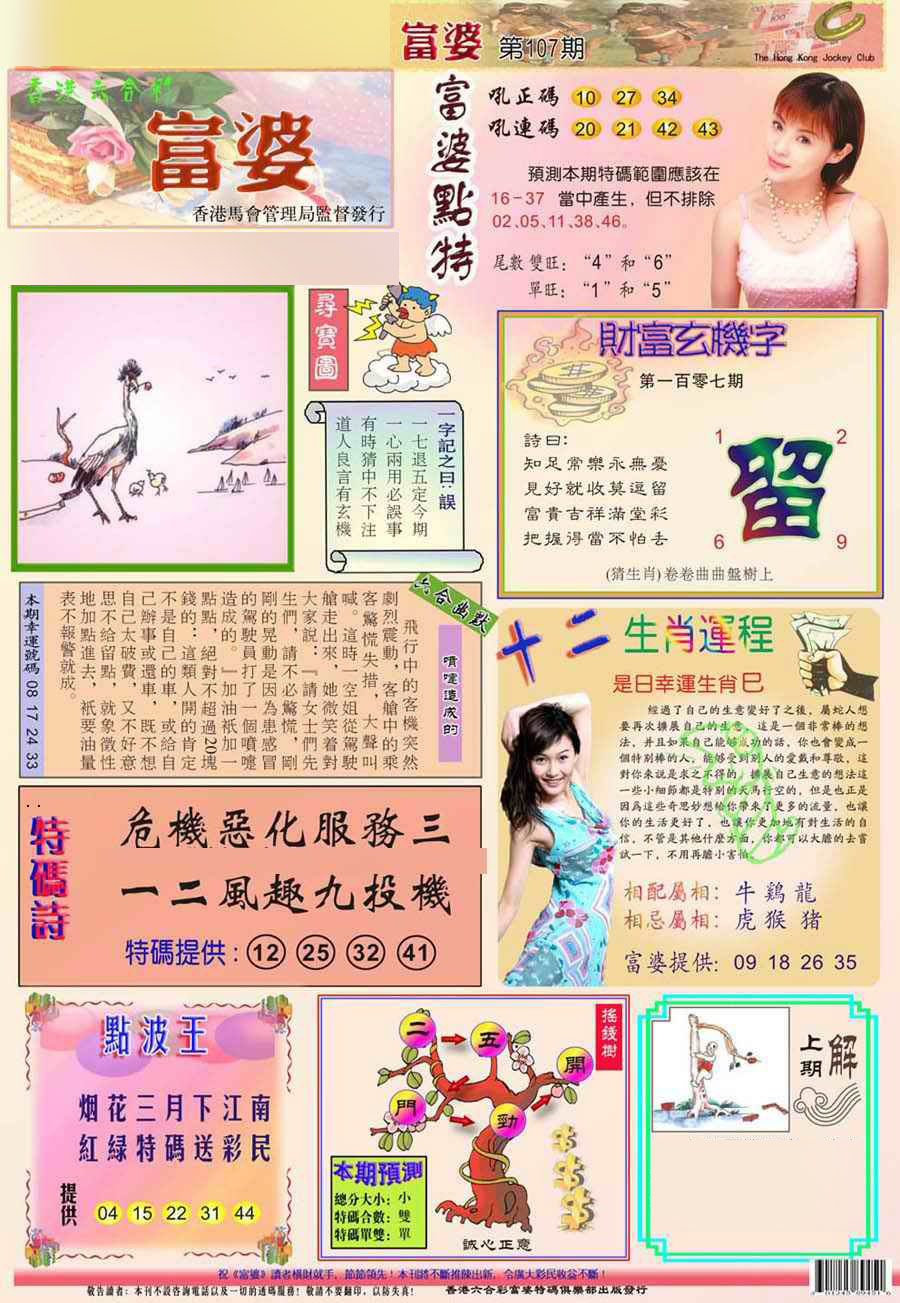 富婆 第107期
The Hong Kong Jockey Club
香港六合彩
富婆
香港馬會管理局監督發行
富婆點特
吼正碼 10 27 34
吼連碼 20 21 42 43
預測本期特碼範圍應該在
16-37 當中產生，但不排除
02、05、11、38、46。
尾數雙旺：“4”和“6”
單旺：“1”和“5”
尋寶圖
一字記之曰：誤
一七退五定今期
一心兩用必誤事
有時猜中不下注
道人良言有玄機
財富玄機字
第一百零七期
詩曰：
知足常樂永無憂
見好就收莫逗留
富貴吉祥滿堂彩
把握得當不怕丟
1 2
留
6 9
(猜生肖)卷卷曲曲盤樹上
六合幽默
噴嚏造成的
飛行中的客機突然
劇烈震動，客艙中的乘
客驚慌失措，大聲叫
喊。這時一空姐從駕駛
艙走出來，她微笑着對
大家說：『請女士們先
生們，請不必驚慌，剛
剛的晃動是因為患感冒
的駕駛員打了一個噴嚏
造成的。』加油衹加一
點點，絕對不超過20塊
錢的：這類人開的肯定
不是自己的車，或給自
己辦事或還車，既不想
自己太破費，又不好意
思不給留點，就象徵性
地加點進去，衹要油量
表不報警就成。
本期幸運號碼 08 17 24 33
十二生肖運程
是日幸運生肖巳
經過了自己的生意變好了之後，屬蛇人想
要再次擴展自己的生意，這是一個非常棒的想
法，并且如果自己能够成功的話，你也會變成一
個特別棒的人，能够受到別人的愛戴和尊敬，這
對你來說是求之不得的。擴展自己生意的想法這
一些小細節都是特別的天馬行空的，但是也正是
因爲這些奇思妙想給你帶來了更多的流量，也讓
你的生活更好了，也讓你更加地有對生活的自
信，不管是其他什麼方面，你都可以大膽的去嘗
試一下，不用再膽小害怕。
相配屬相：牛 鷄 龍
相忌屬相：虎 猴 猪
富婆提供：09 18 26 35
特碼詩
危機惡化服務三
一二風趣九投機
特碼提供：12 25 32 41
點波王
烟花三月下江南
紅緑特碼送彩民
提供 04 15 22 31 44
搖錢樹
二 五
門 勁 開
本期預測
總分大小：小
特碼合數：雙
特碼單雙：單
誠心正意
上期解
祝《富婆》讀者橫財就手，節節領先！本刊將不斷推陳出新，令廣大彩民收益不斷！
敬告讀者：本刊不設咨詢電話以及一切的透碼服務！敬請不要翻印，以防失真！
香港六合彩富婆特碼俱樂部出版發行